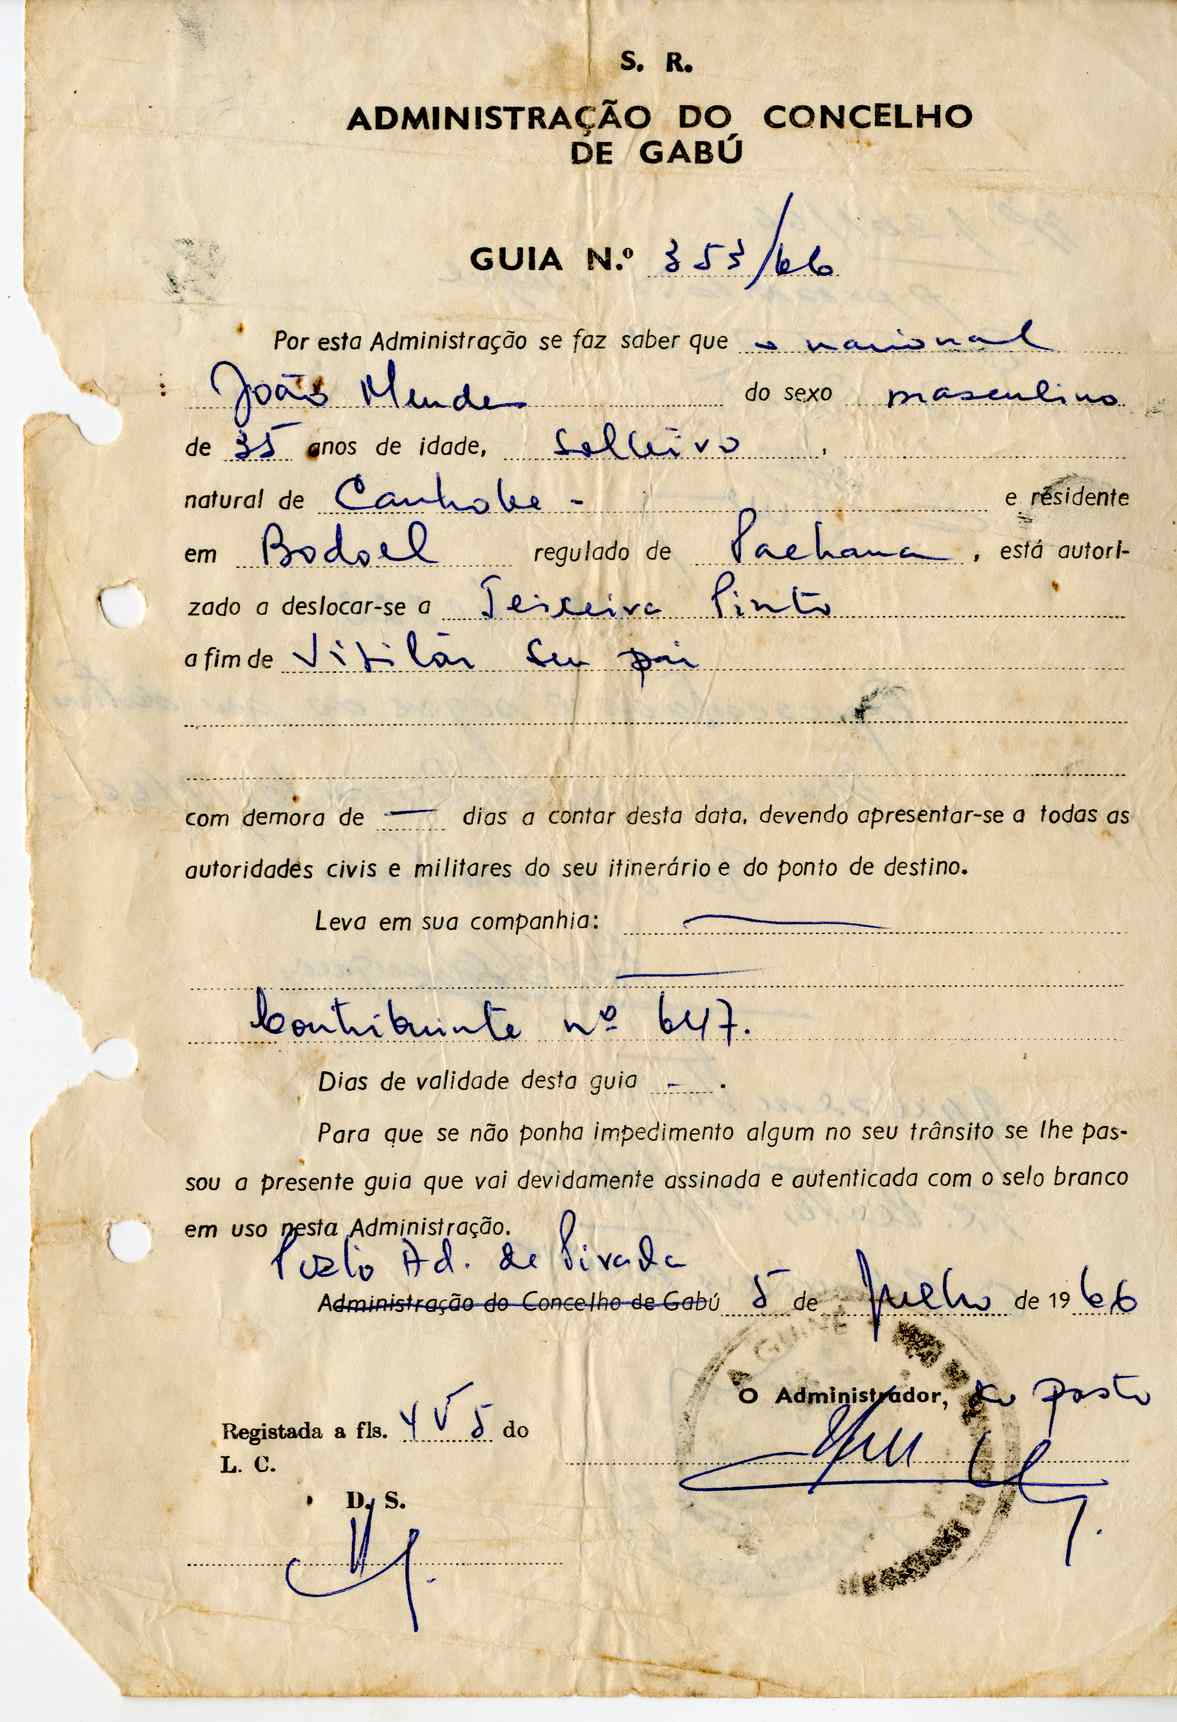 S. R.
ADMINISTRAÇÃO DO CONCELHO
DE GABÚ
GUIA N.º 353/66
Por esta Administração se faz saber que o nacional
João Mendes do sexo masculino
de 35 anos de idade, solteiro,
natural de Canhobe - e residente
em Bodoel regulado de Pachana, está autori-
zado a deslocar-se a Teixeira Pinto
a fim de Visitar seu pai
com demora de — dias a contar desta data, devendo apresentar-se a todas as
autoridades civis e militares do seu itinerário e do ponto de destino.
Leva em sua companhia: —
—
Contribuinte nº 647.
Dias de validade desta guia - .
Para que se não ponha impedimento algum no seu trânsito se lhe pas-
sou a presente guia que vai devidamente assinada e autenticada com o selo branco
em uso nesta Administração.
Posto Ad. de Pirada
Administração do Concelho de Gabú 5 de Julho de 1966
O Administrador, do posto
Registada a fls. 4 V 5 do
L. C.
D. S.